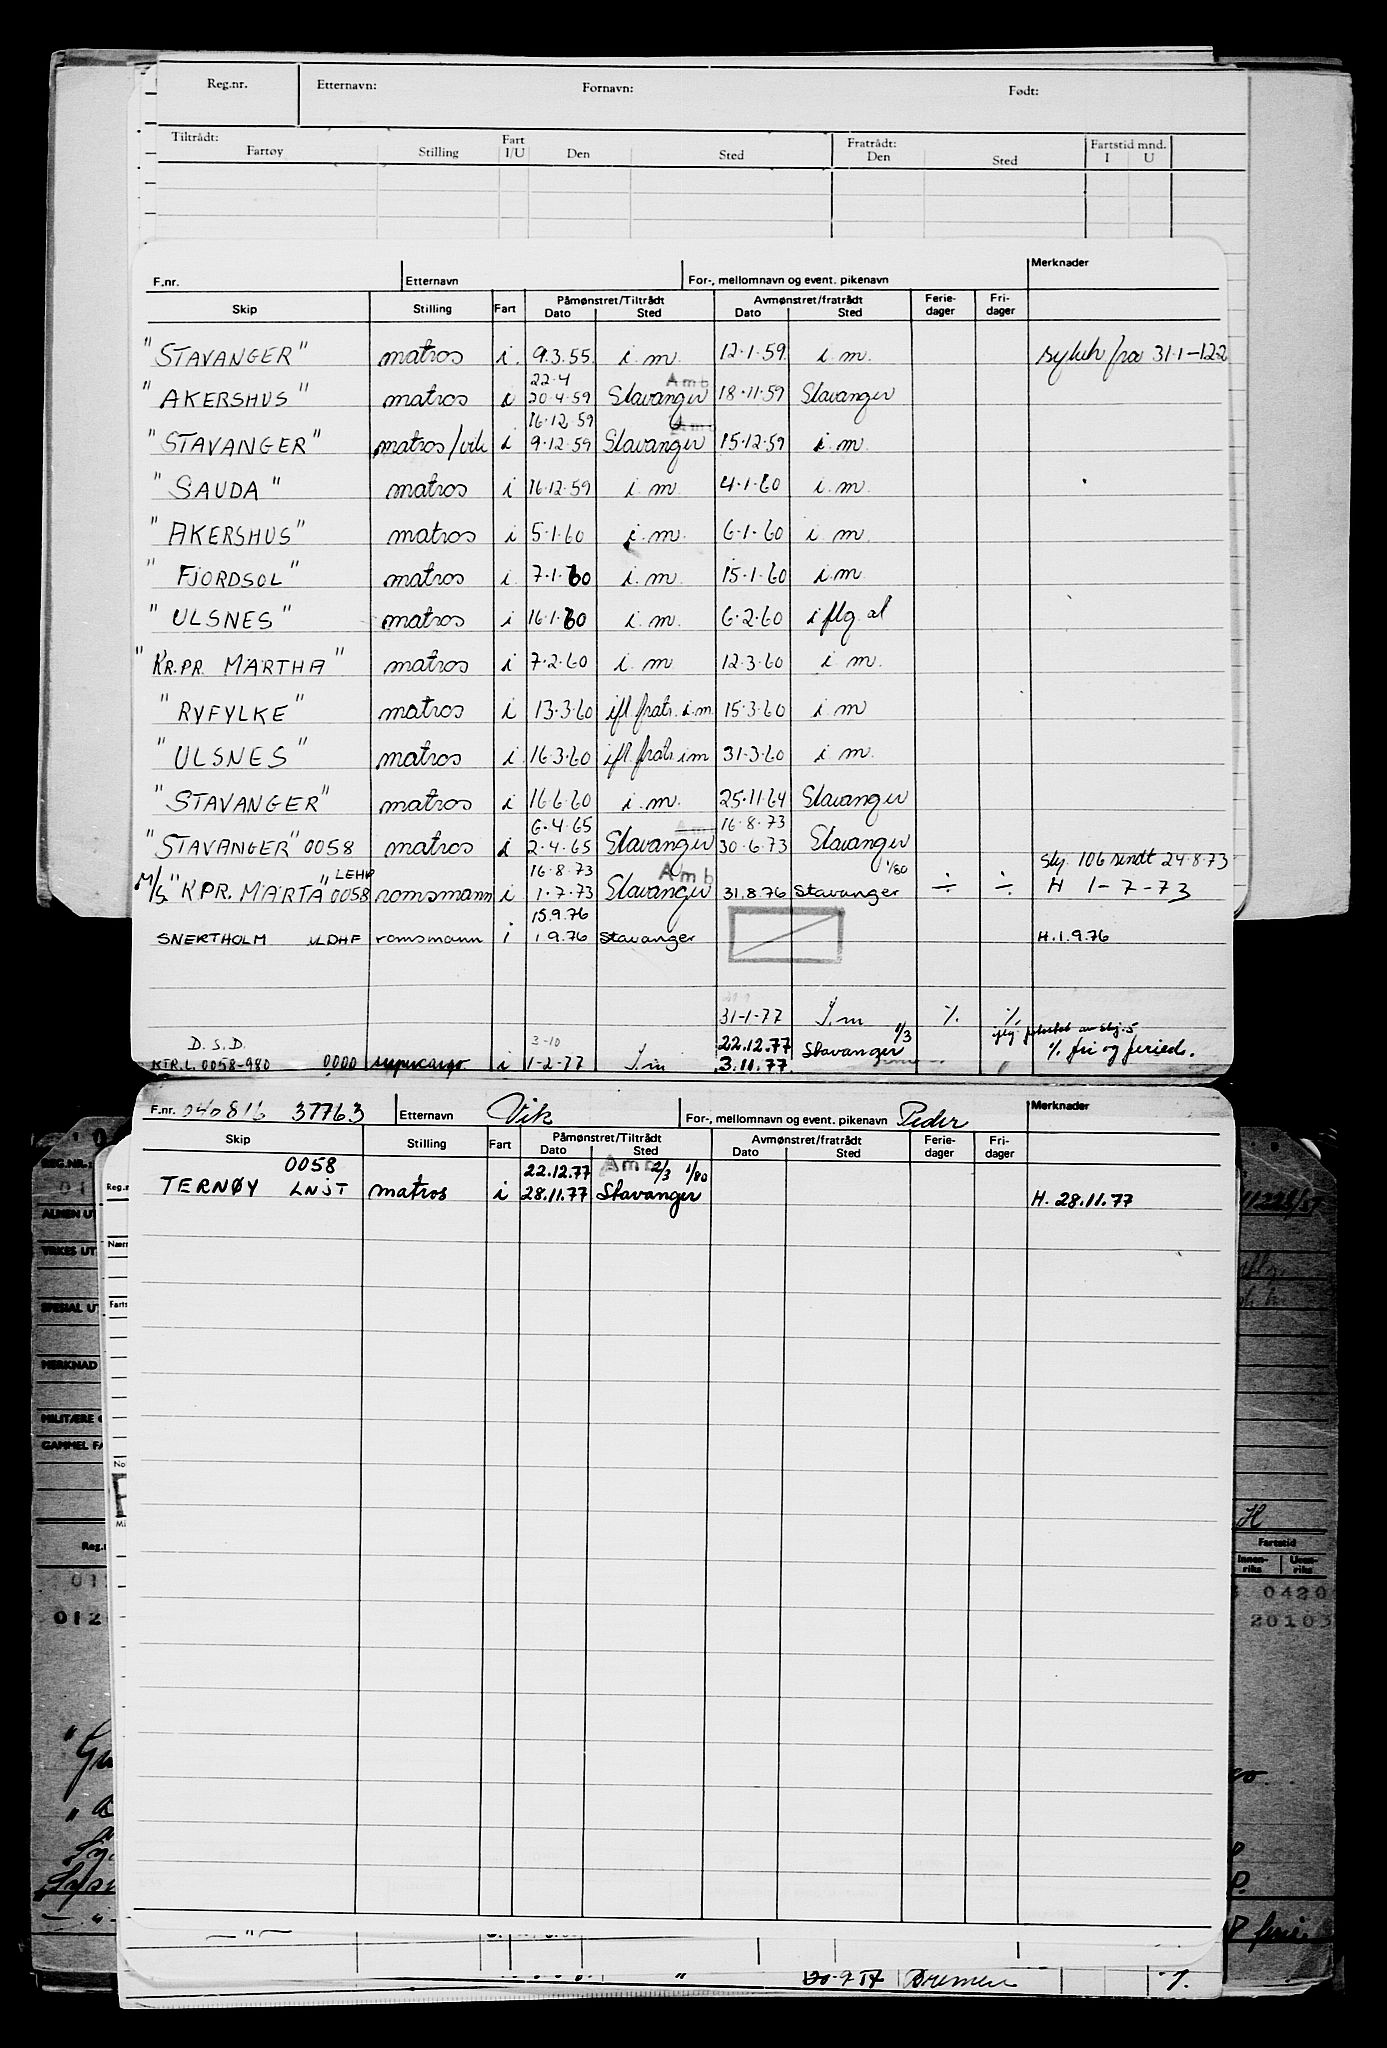 Reg.nr. Etternavn: Fornavn: Født:
Tiltrådt: Fratrådt: Fartstid mnd.
Fartøy Stilling Fart I/U Den Sted Den Sted I U
F.nr. Etternavn For-, mellomnavn og event. pikenavn Merknader
Skip Stilling Fart Påmønstret/Tiltrådt Avmønstret/fratrådt Ferie-dager Fri-dager
Dato Sted Dato Sted
"STAVANGER" matros i. 9.3.55. i.m. 12.1.59. i.m. fra 31.1-12.2
22.4 Amb
"AKERSHUS" matros i 20.4.59 Stavanger 18.11.59 Stavanger
16.12.59 Amb
"STAVANGER" matros/ i 9.12.59 Stavanger 15.12.59 i.m
"SAUDA" matros i 16.12.59 i.m. 4.1.60 i.m.
"AKERSHUS" matros i 5.1.60 i.m. 6.1.60 i m.
"FJORDSOL" matros i 7.1.60 i.m. 15.1.60 i.m
"ULSNES" matros i 16.1.60 i.m. 6.2.60 i flg. al
"KR.PR. MÄRTHA" matros i 7.2.60 i.m 12.3.60 i m.
"RYFYLKE" matros i 13.3.60 ifl. fratr. i.m 15.3.60 i.m
"ULSNES" matros i 16.3.60 ifl. fratr. i m 31.3.60 i m.
"STAVANGER" matros i 16.6.60 i.m. 25.11.64 Stavanger
6.4.65 Amb 16.8.73
"STAVANGER" 0058 matros i 2.4.65 Stavanger 30.6.73 Stavanger
LEHP 16.8.73 Amb 1/80 Skj. 106 sendt 24.8.73
M/S "K PR. MÄRTA" 0058 romsmann i 1.7.73 Stavanger 31.8.76 Stavanger ÷ ÷ H 1-7-73
15.9.76
SNERTHOLM ULDHF romsmann i 1 9.76 Stavanger H.1.9.76
31-1-77 I.m % %
D.S.D. 3-10 22.12.77 Stavanger 1/3 % fri og feried.
KTR.L. 0058-980 0000 supercargo i 1-2-77 I m 3.11.77
F.nr. 040816 37763 Etternavn Vik For-, mellomnavn og event. pikenavn Peder Merknader
Skip Stilling Fart Påmønstret/Tiltrådt Avmønstret/fratrådt Ferie-dager Fri-dager
Dato Sted Dato Sted
0058 22.12.77 Amb 2/3 1/80
TERNØY LNJT matros i 28.11.77 Stavanger H. 28.11.77
REG.NR.:
ALMEN UT
YRKES UT
SPESIAL UT
MERKNAD
MILITÆRE
GAMMEL FA
H
Fartstid
Innen-riks Uten-riks
0420
012 20103
" 20-9 57 Bremen 7.